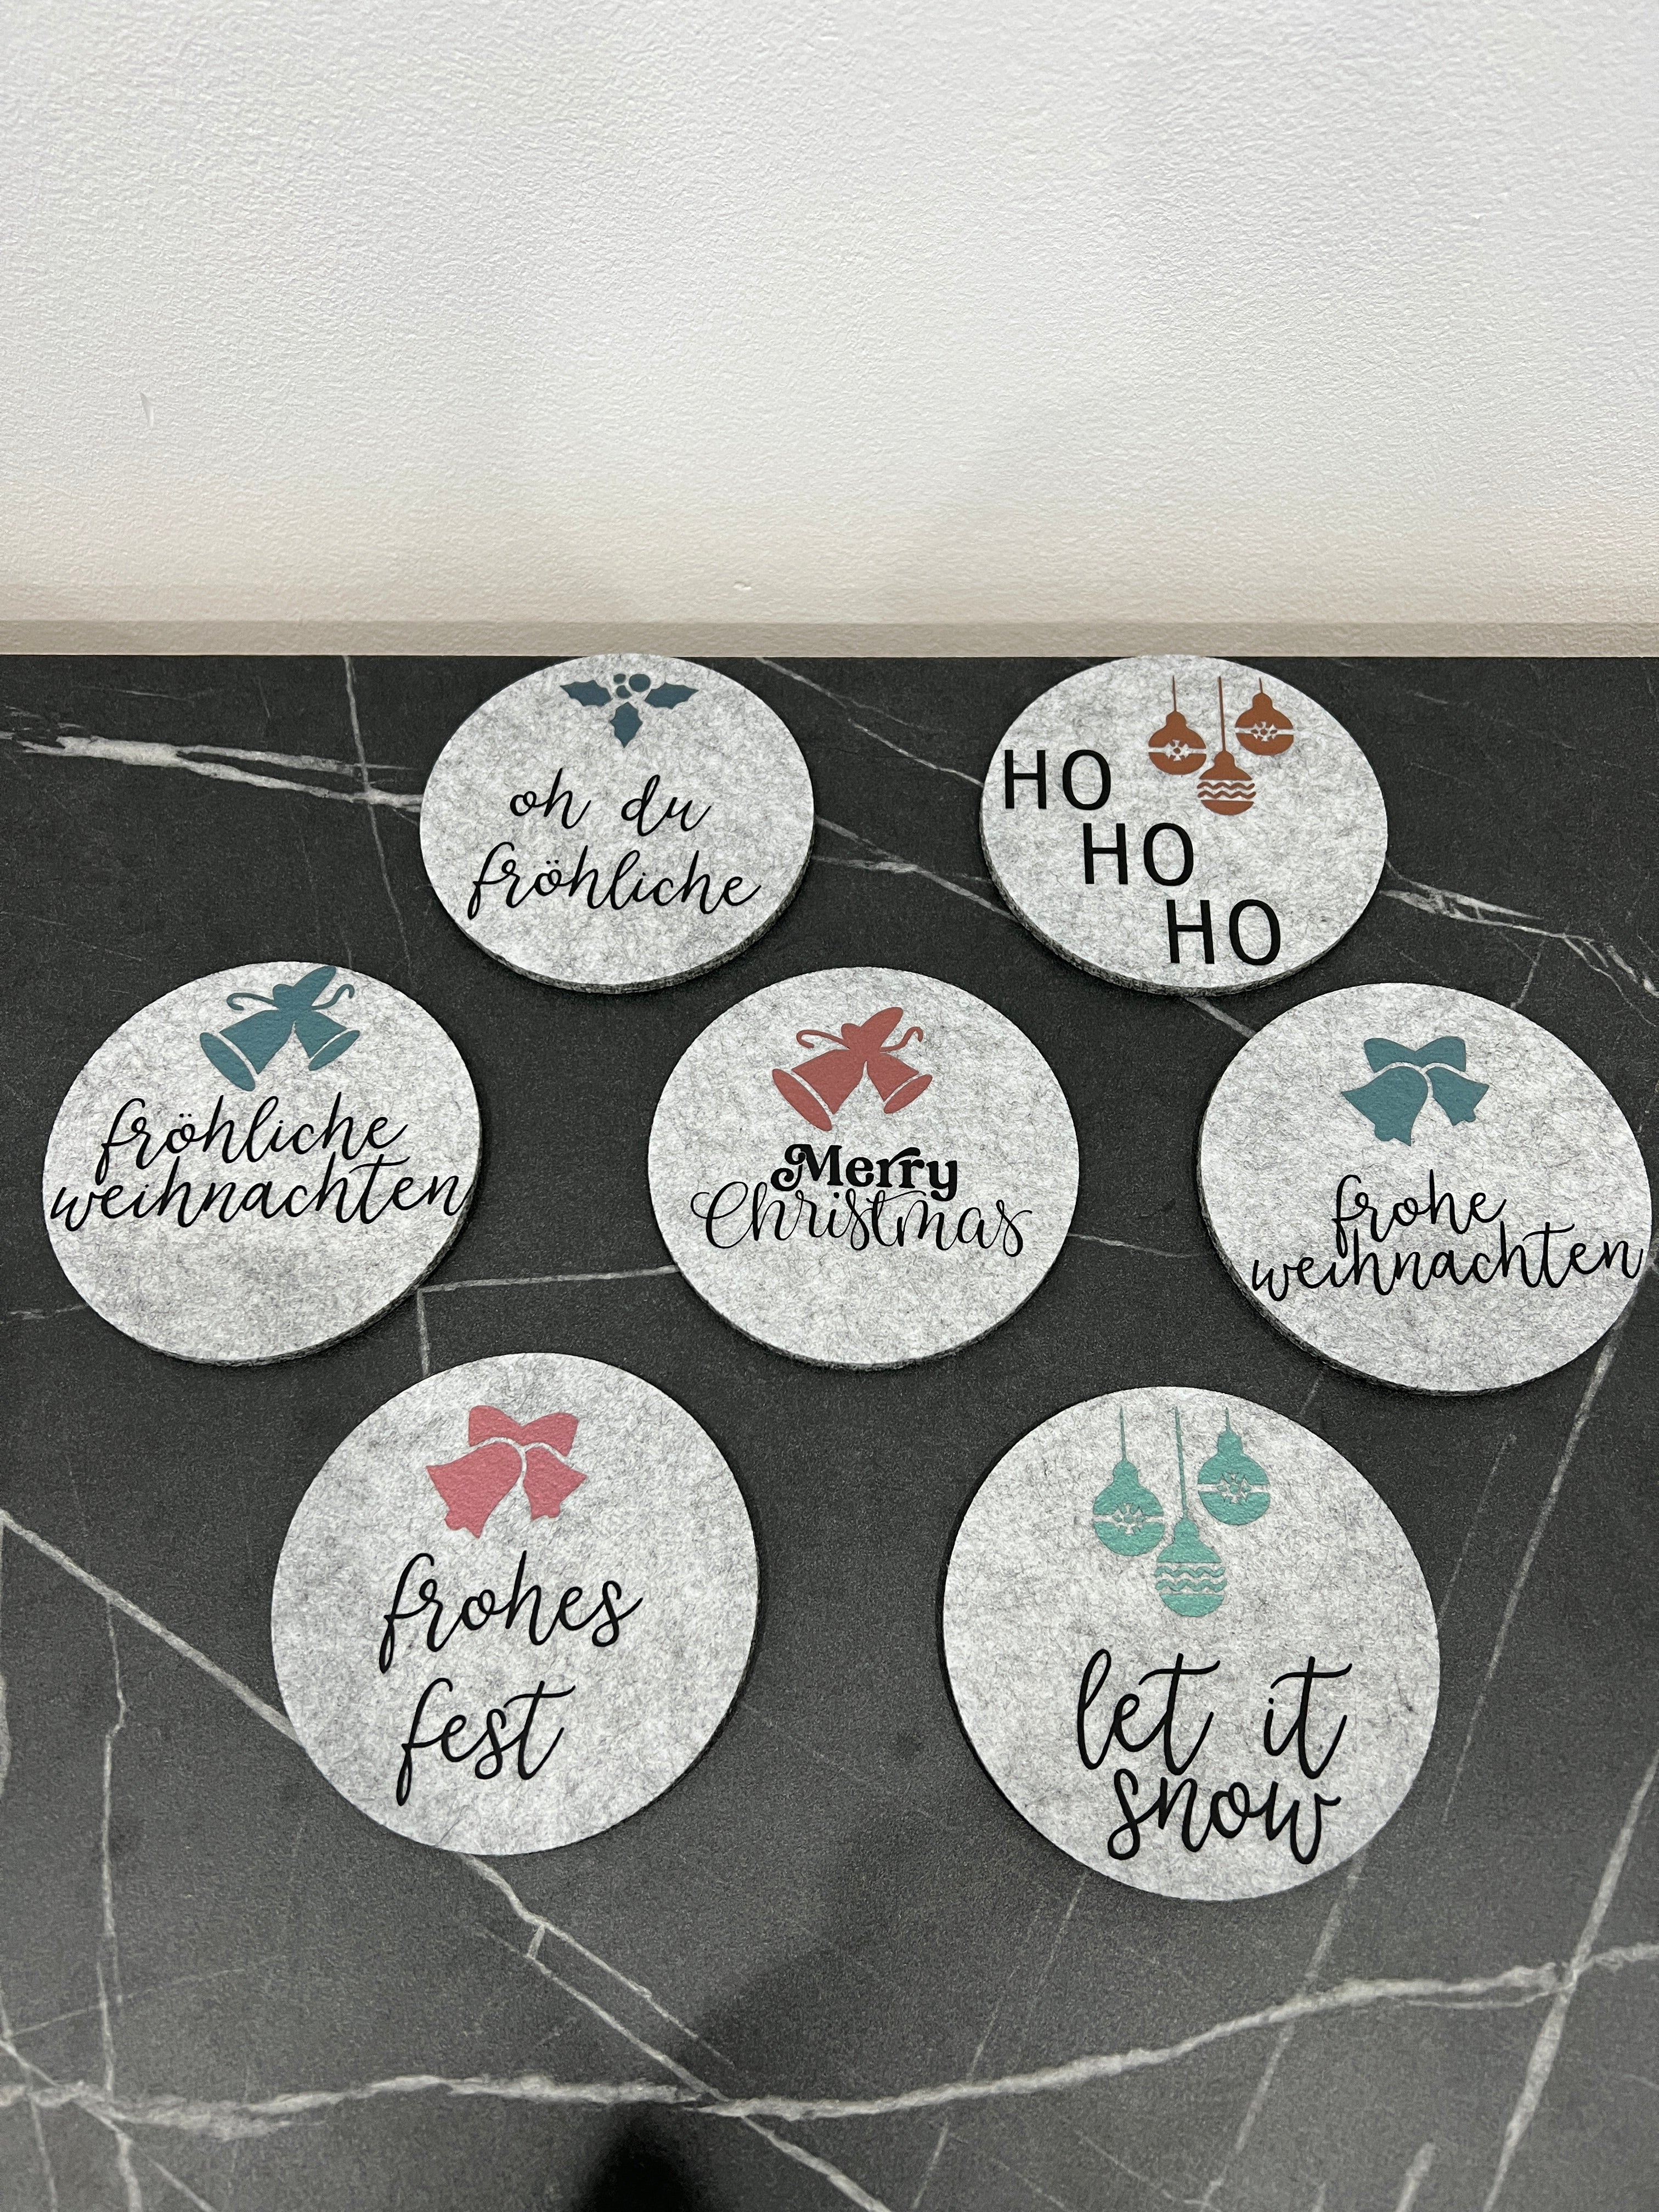 oh du
fröhliche
HO
HO
HO
fröhliche
weihnachten
Merry
Christmas
frohe
weihnachten
frohes
fest
let it
snow